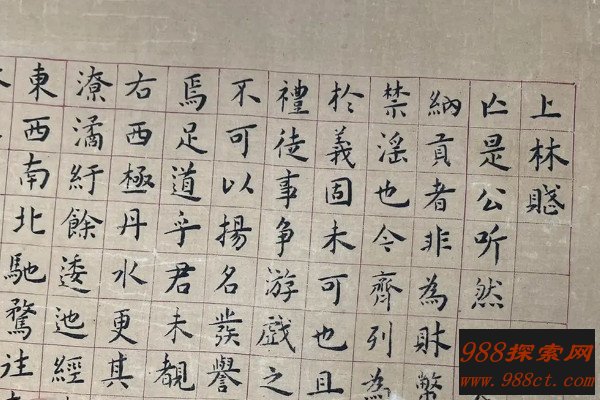 上林賦
亡是公听然
納貢者非為財幣
禁淫也今齊列為
於義固未可也且
禮徒事争游戲之
不可以揚名發譽
焉足道乎君未覩
右西極丹水更其
潦潏紆餘逶迤經
東西南北馳騖往
988探索网
www.988ct.com